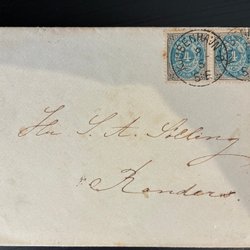 KJØBENHAVN
4 4
Hr. S. A. Sølling
Randers.